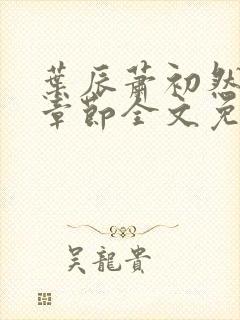 葉辰蕭初然
章節全文免
吳龍貴